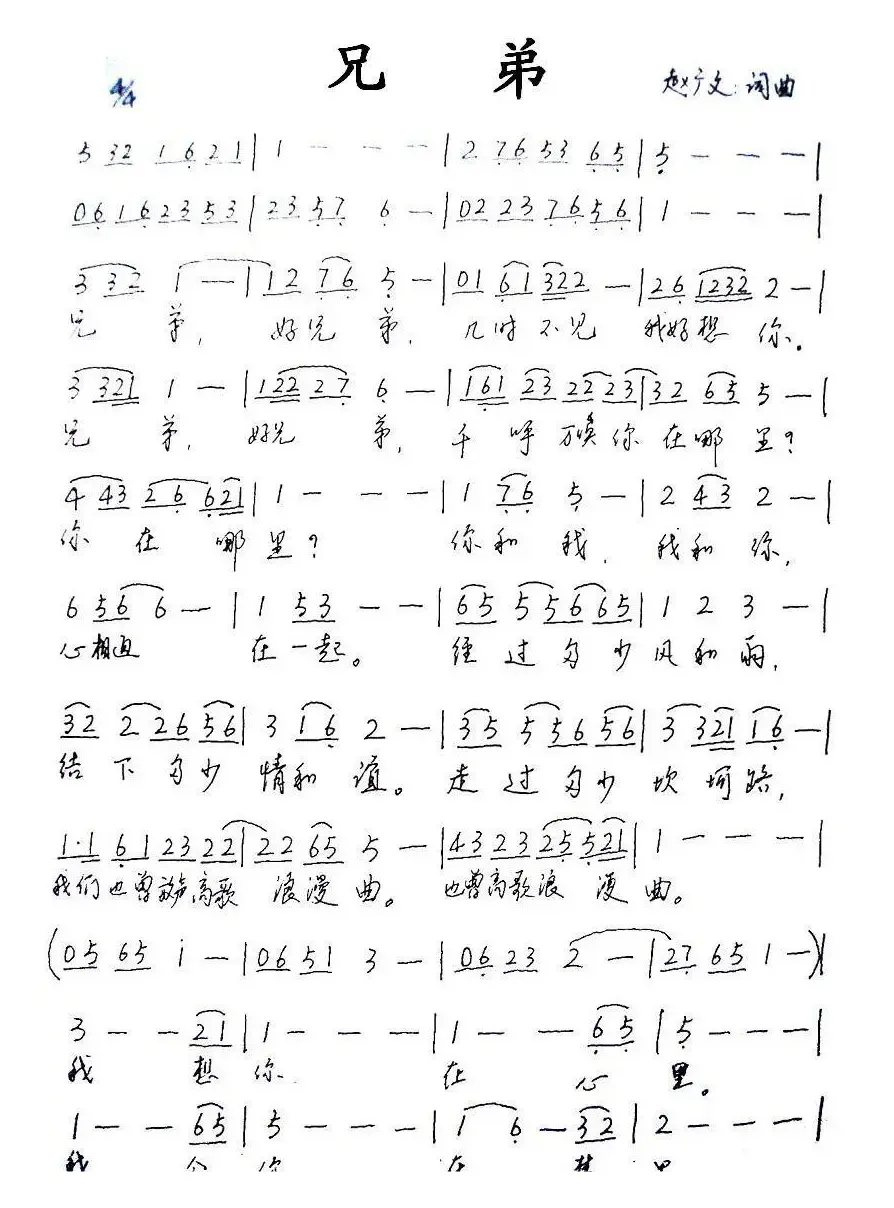 兄 弟
4/4 赵广文:词曲
5 32 16 21 | 1 - - - | 2 76 53 65 | 5 - - - |
06 16 23 53 | 23 57 6 - | 02 23 76 56 | 1 - - - |
3 32 1 - | 12 76 5 - | 01 61 322 - | 26 1232 2 - |
兄 弟, 好兄 弟, 几时不见 我好想 你。
3 321 1 - | 122 27 6 - | 161 23 22 23 | 32 65 5 - |
兄 弟, 好兄 弟, 千呼万唤你在哪里?
4 43 26 621 | 1 - - - | 1 76 5 - | 2 43 2 - |
你 在 哪 里? 你和 我, 我和 你,
6 56 6 - | 1 53 - - | 65 5 56 65 | 1 2 3 - |
心相连 在一起。 经过多少风和雨,
32 2 26 56 | 3 16 2 - | 35 5 56 56 | 3 321 16 - |
结下多少 情和谊。 走过多少坎坷路,
1·1 61 23 22 | 22 65 5 - | 43 23 25 521 | 1 - - - |
我们也曾放声高歌 浪漫曲。 也曾高歌浪漫曲。
(05 65 i - | 06 51 3 - | 06 23 2 - | 27 65 1 -)|
3 - - 21 | 1 - - - | 1 - - 65 | 5 - - - |
我 想你 在 心 里。
1 - - 65 | 5 - - - | 1 6 - 32 | 2 - - - |
我